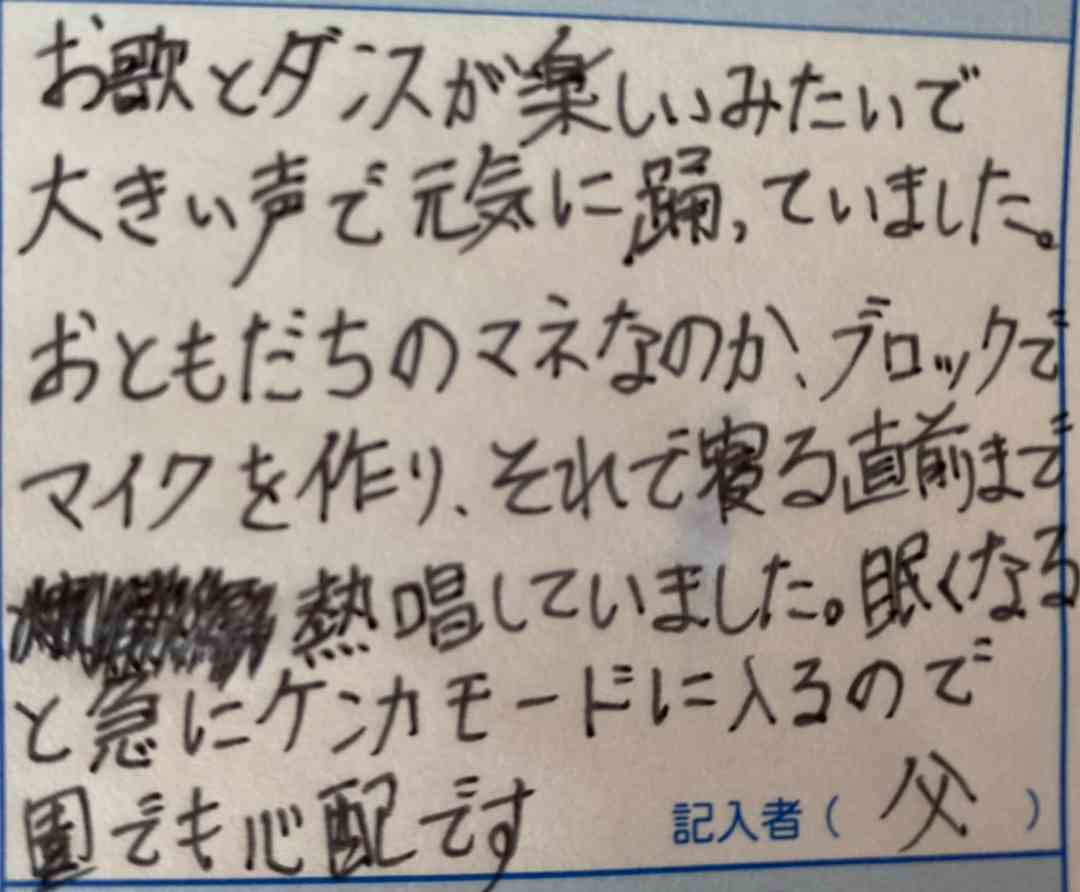 お歌とダンスが楽しいみたいで
大きい声で元気に踊っていました。
おともだちのマネなのか、ブロックで
マイクを作り、それで寝る直前まで
熱唱していました。眠くなる
と急にケンカモードに入るので
園でも心配です
記入者(父)